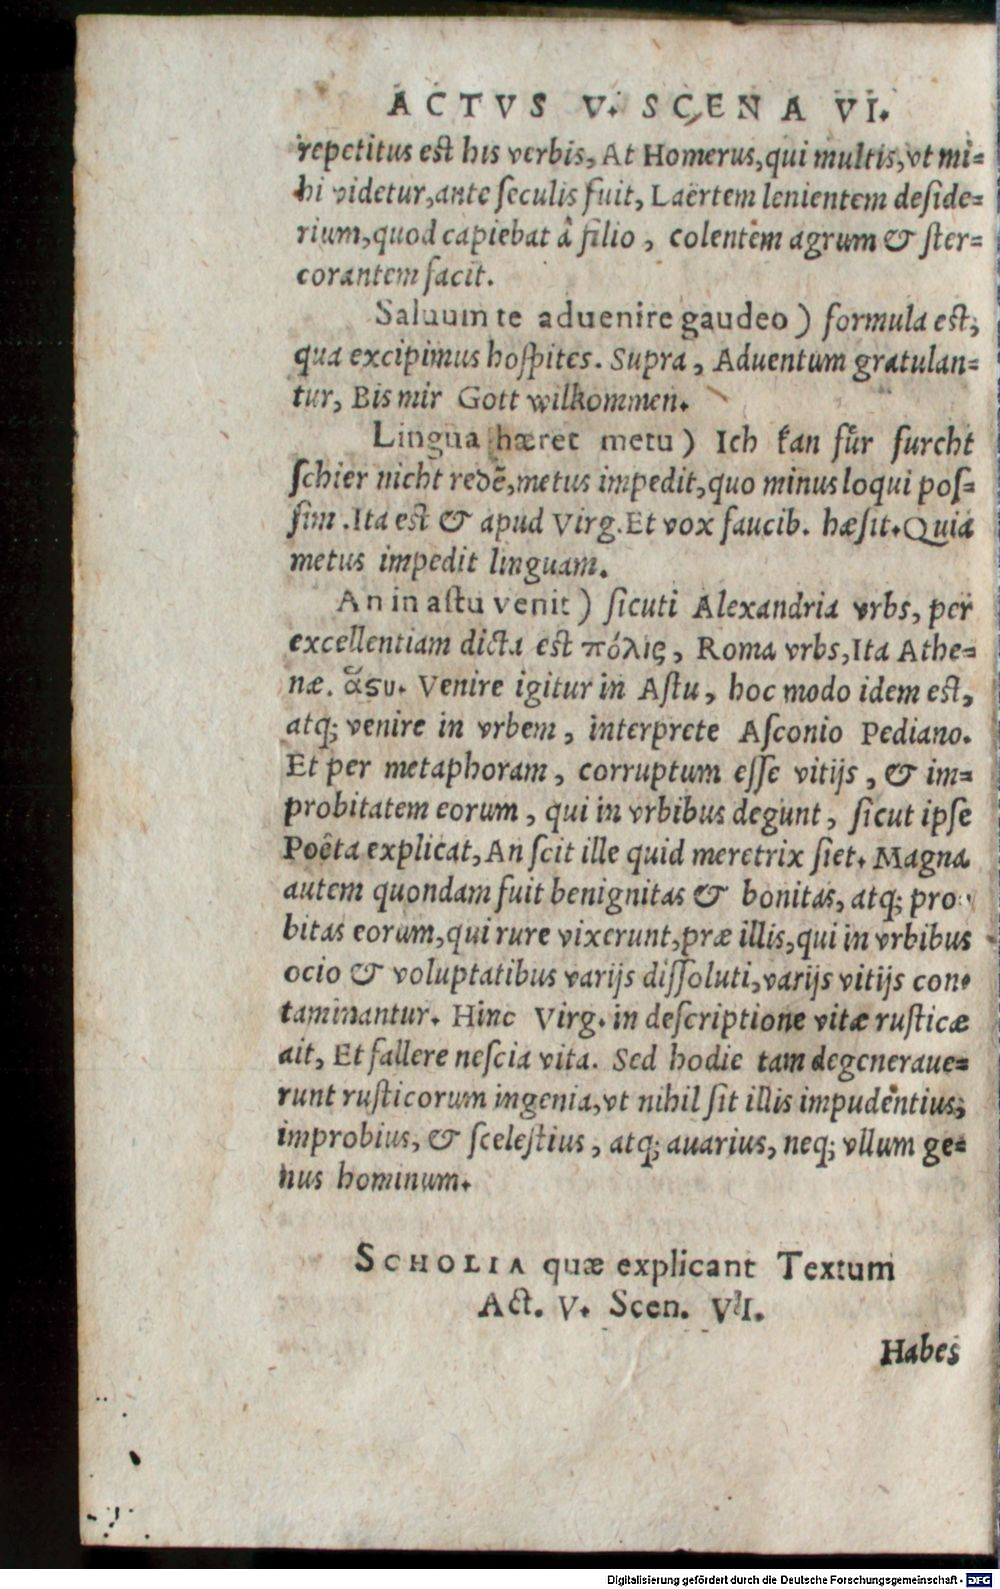 ACTVS V. SCENA VI.
repetitus est his verbis, At Homerus, qui multis, vt mi-
hi videtur, ante seculis fuit, Laërtem lenientem deside-
rium, quod capiebat à filio, colentem agrum & ster-
corantem facit.
Saluum te aduenire gaudeo) formula est,
qua excipimus hospites. Supra, Aduentum gratulan-
tur, Bis mir Gott wilkommen.
Lingua hæret metu) Ich kan für furcht
schier nicht redē, metus impedit, quo minus loqui pos-
sim. Ita est & apud Virg. Et vox faucib. hæsit. Quia
metus impedit linguam.
An in astu venit) sicuti Alexandria vrbs, per
excellentiam dicta est πόλις, Roma vrbs, Ita Athe-
næ. ἄϛυ. Venire igitur in Astu, hoc modo idem est,
atq; venire in vrbem, interprete Asconio Pediano.
Et per metaphoram, corruptum esse vitijs, & im-
probitatem eorum, qui in vrbibus degunt, sicut ipse
Poêta explicat, An scit ille quid meretrix siet. Magna
autem quondam fuit benignitas & bonitas, atq; pro-
bitas eorum, qui rure vixerunt, præ illis, qui in vrbibus
ocio & voluptatibus varijs dissoluti, varijs vitijs con-
taminantur. Hinc Virg. in descriptione vitæ rusticæ
ait, Et fallere nescia vita. Sed hodie tam degeneraue-
runt rusticorum ingenia, vt nihil sit illis impudentius,
improbius, & scelestius, atq; auarius, neq; vllum ge-
nus hominum.
SCHOLIA quæ explicant Textum
Act. V. Scen. VII.
Habes
Digitalisierung gefördert durch die Deutsche Forschungsgemeinschaft - DFG